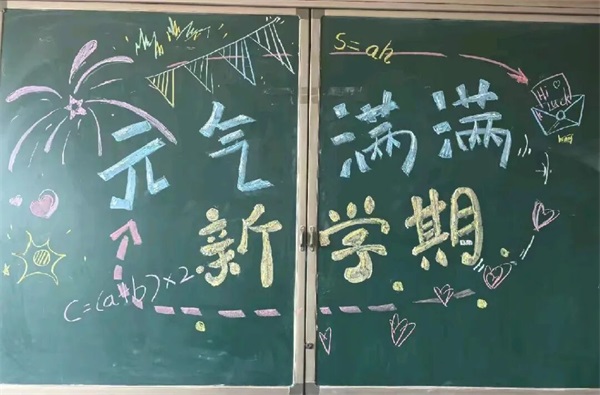 S=ah
Hi
luck
元气满满
新学期
C=(a+b)×2